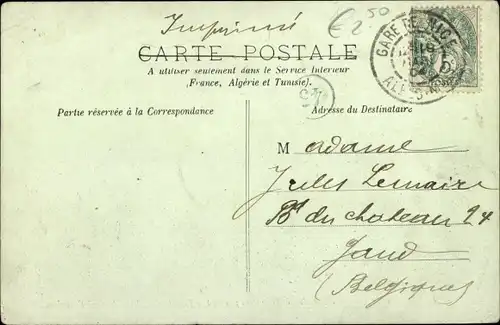 Imprimé
€ 2,50
CARTE POSTALE
A utiliser seulement dans le Service Intérieur
(France, Algérie et Tunisie).
GARE DE NICE
Partie réservée à la Correspondance
Adresse du Destinataire
Madame
Jules Lemaire
Bd du chateau 24
Gand
(Belgique)